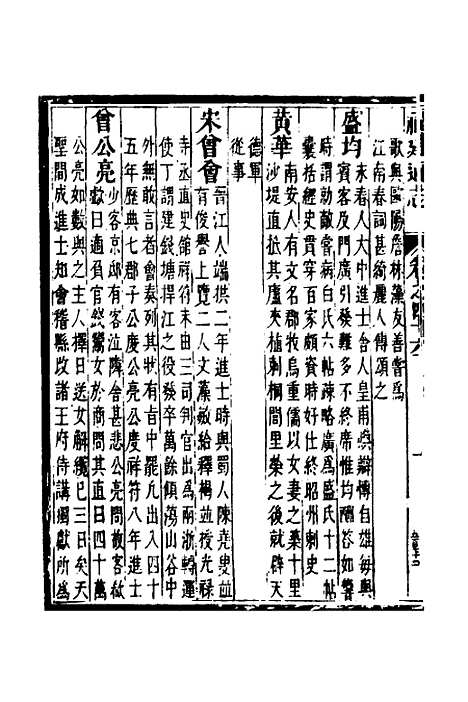 歌與歐陽詹林藻友善嘗爲
江南春詞甚綺麗人傳頌之
盛均 永春人大中進士舍人皇甫煥辯博自雄每與
賓客及門廣引發難多不終席惟均酬荅如響
時謂勍敵嘗病白氏六帖疎略廣爲盛氏十二帖
囊括經史貫穿百家頗資時好仕終昭州刺史
黃華 南安人有文名郡牧烏重儒以女妻之築十里
沙堤直抵其廬夾植刺桐閭里榮之後就辟天
德軍
從事
宋曾會 晉江人端拱二年進士時與蜀人陳堯叟並
有俊譽上覽二人文藻敏給釋褐並授光祿
寺丞直史館祥符末由三司判官出爲兩浙轉運
使丁謂建錢塘捍江之役發卒萬餘傾蕩山谷中
外無敢言者會奏列其狀有旨中罷凢出入四十
五年歷典七郡子公度公亮公慶祥符八年進士
曾公亮 少客京邸有客泣隣舍甚悲公亮問故客欲
曰適負官錢鬻女於商問其直曰四十萬
公亮如數與之主人擇日送女解纜已三日矣天
聖間成進士知會稽縣改諸王府侍講獨獻所爲